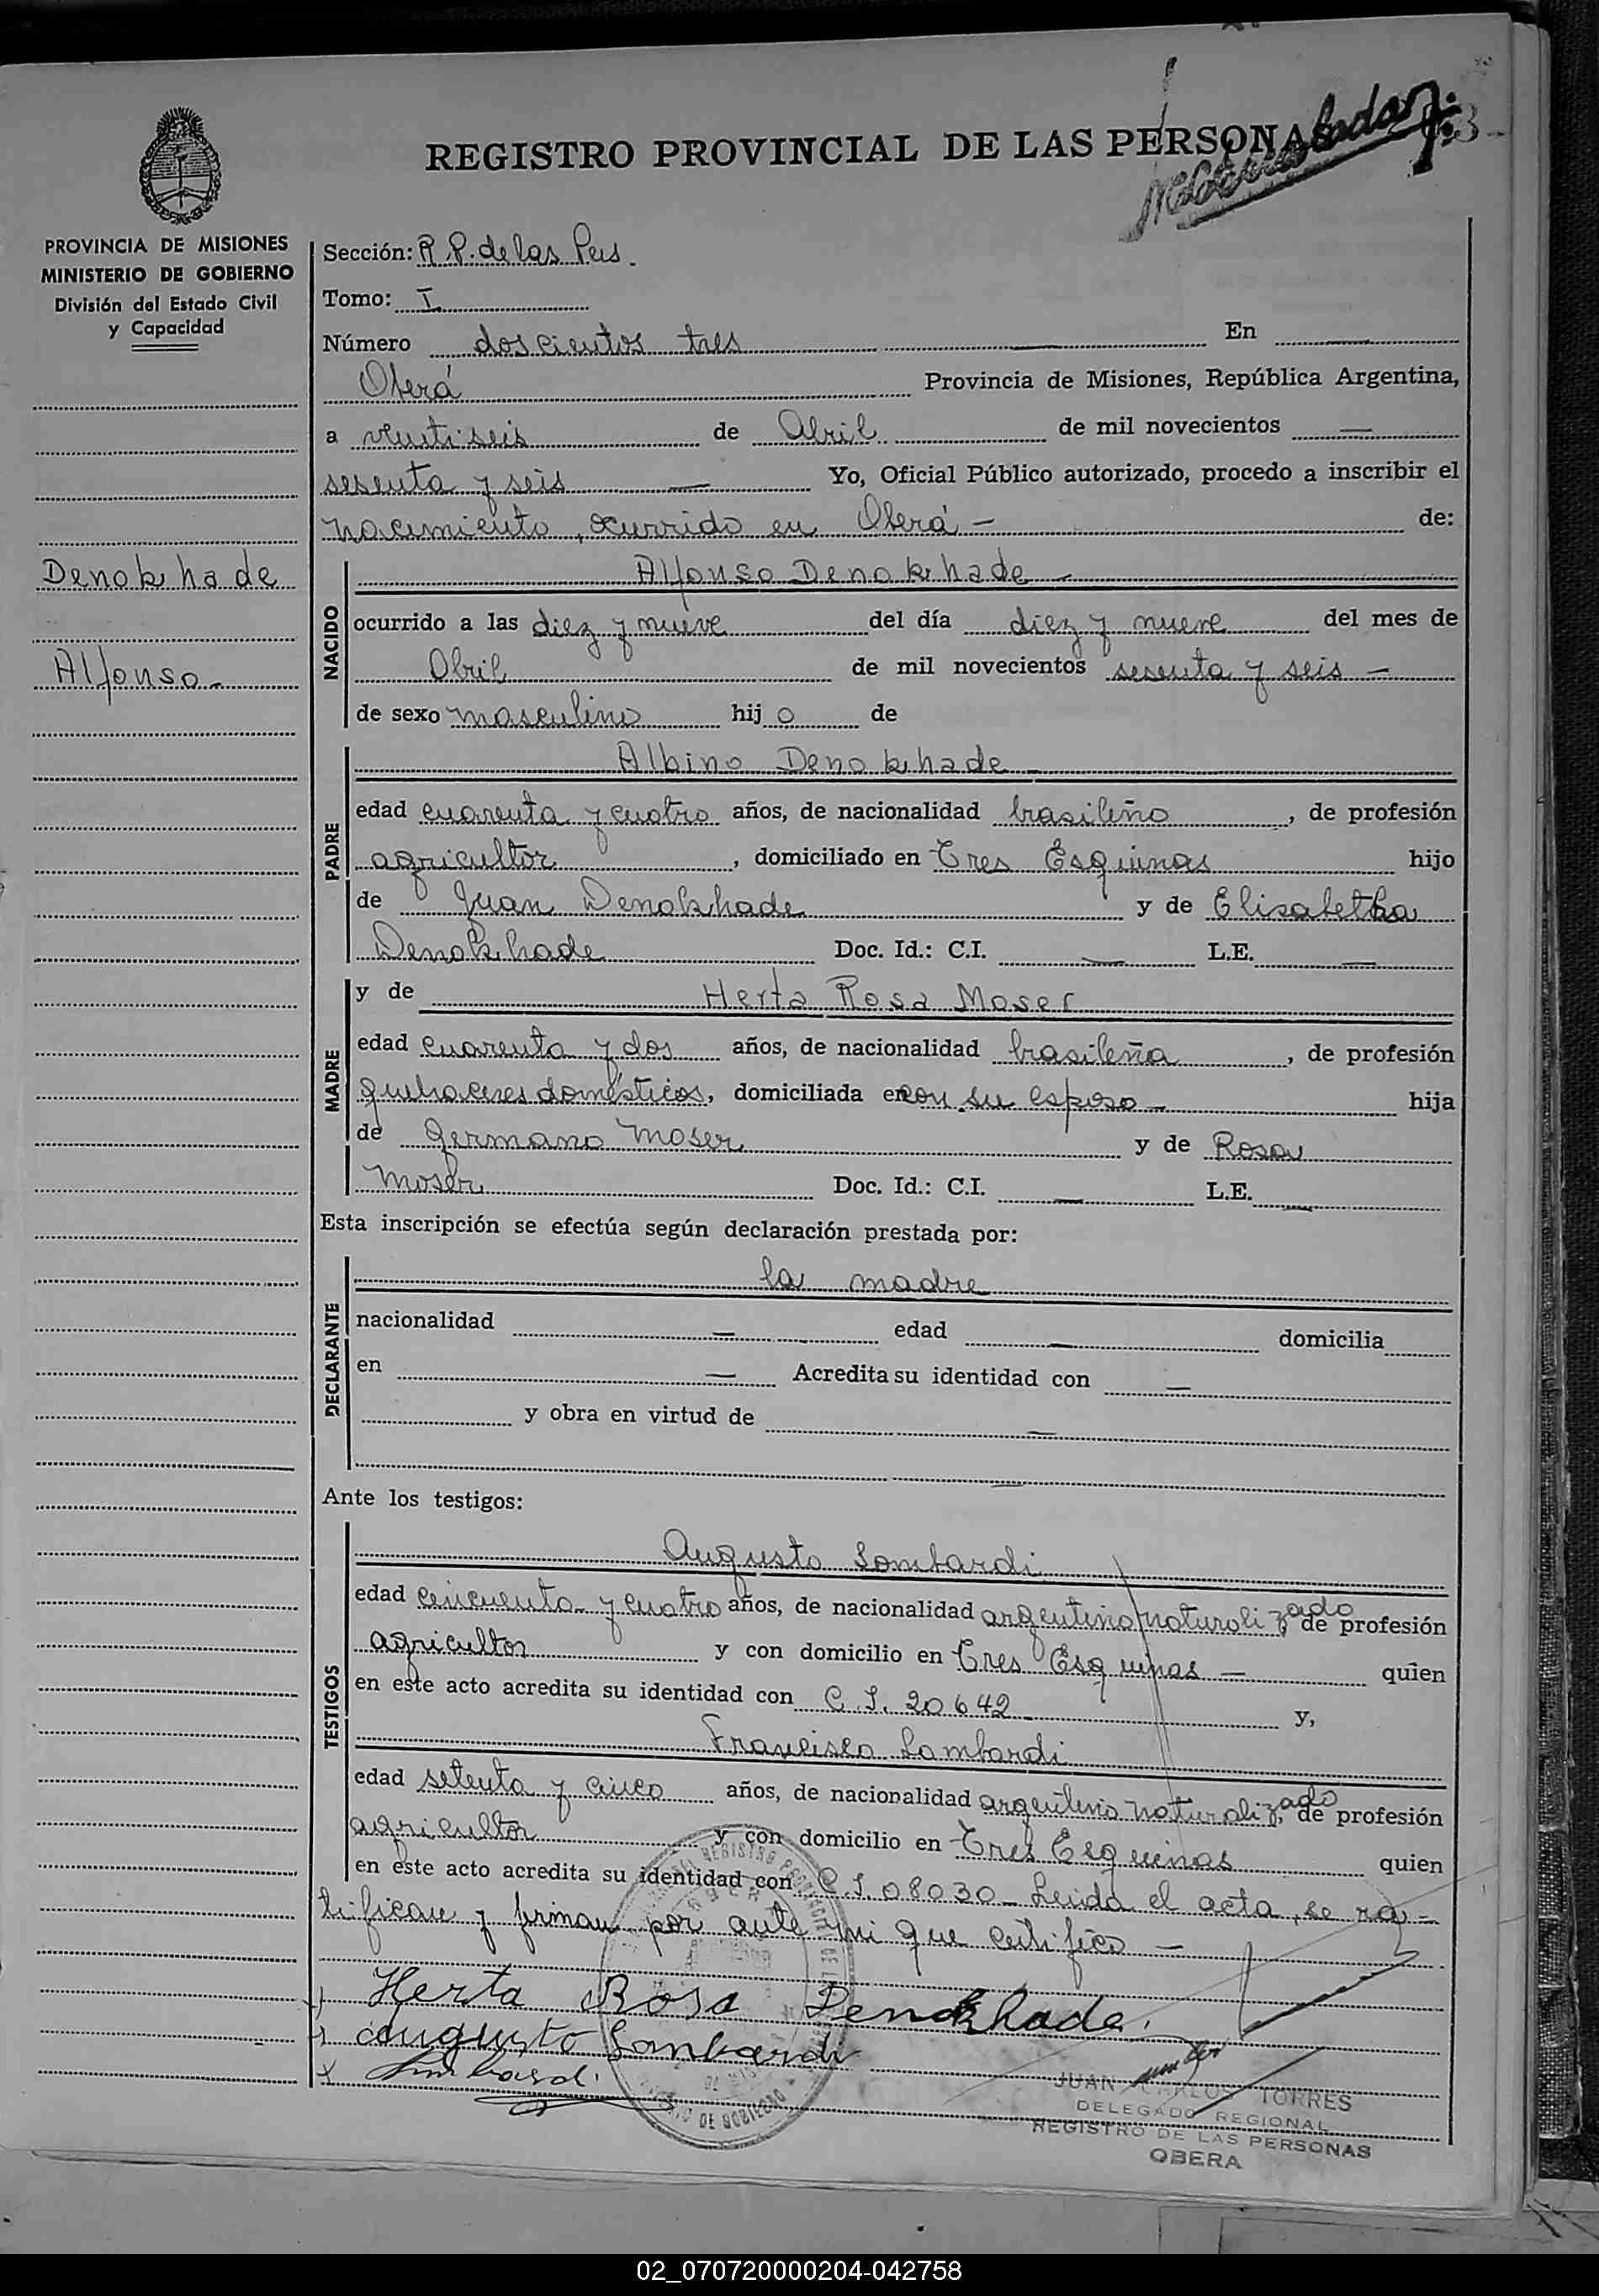 REGISTRO PROVINCIAL DE LAS PERSONAS
PROVINCIA DE MISIONES
MINISTERIO DE GOBIERNO
División del Estado Civil
y Capacidad
Denokhade
Alfonso
Sección: R.P. de las Pers.
Tomo: I
Número doscientos tres — En —
Oberá Provincia de Misiones, República Argentina,
a veintiseis de Abril de mil novecientos —
sesenta y seis — Yo, Oficial Público autorizado, procedo a inscribir el
nacimiento, ocurrido en Oberá — de:
NACIDO
Alfonso Denokhade —
ocurrido a las diez y nueve del día diez y nueve del mes de
Abril de mil novecientos sesenta y seis —
de sexo masculino hijo de
PADRE
Albino Denokhade —
edad cuarenta y cuatro años, de nacionalidad brasileño, de profesión
agricultor, domiciliado en Tres Esquinas hijo
de Juan Denokhade y de Elisabetha
Denokhade Doc. Id.: C.I. — L.E. —
MADRE
y de Herta Rosa Moser
edad cuarenta y dos años, de nacionalidad brasileña, de profesión
quehaceres domésticos, domiciliada en con su esposo — hija
de Germano Moser y de Rosa
Moser Doc. Id.: C.I. — L.E. —
Esta inscripción se efectúa según declaración prestada por:
DECLARANTE
la madre
nacionalidad — edad — domicilia
en — Acredita su identidad con —
y obra en virtud de —
—
Ante los testigos:
TESTIGOS
Augusto Lombardi
edad cincuenta y cuatro años, de nacionalidad argentino naturalizado, de profesión
agricultor y con domicilio en Tres Esquinas — quien
en este acto acredita su identidad con C.I. 20642 y,
Francisco Lombardi
edad setenta y cinco años, de nacionalidad argentino naturalizado, de profesión
agricultor y con domicilio en Tres Esquinas quien
en este acto acredita su identidad con C.I. 08030 — Leida el acta, se ra-
tifican y firman por ante mi que certifico —
Herta Rosa Denokhade.
Augusto Lombardi
JUAN CARLOS TORRES
DELEGADO REGIONAL
REGISTRO DE LAS PERSONAS
OBERA
02_070720000204-042758